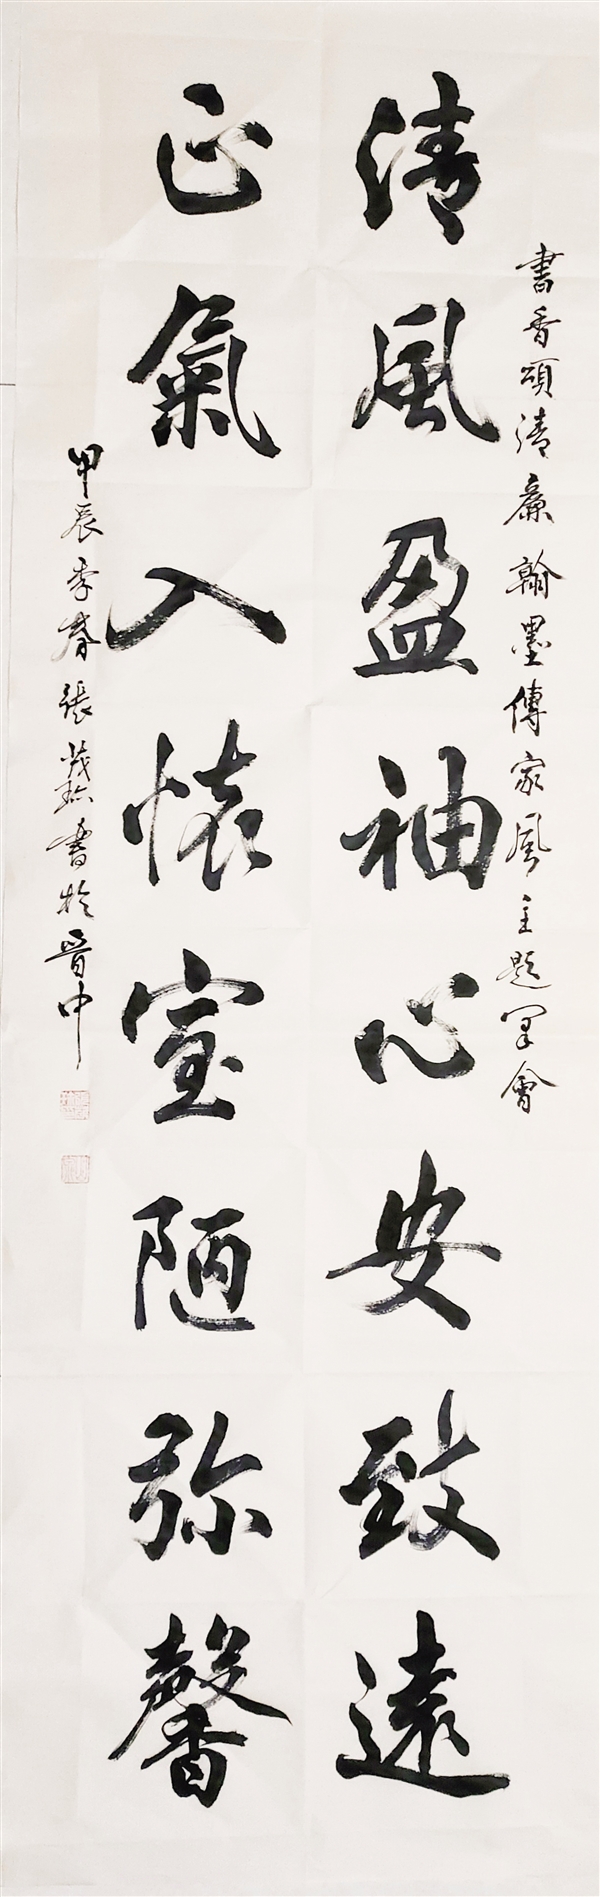 書香頌清廉翰墨傳家風主題筆會
清風盈袖心安致遠
正氣入懐室陋弥馨
甲辰季春張茂珍書於晉中